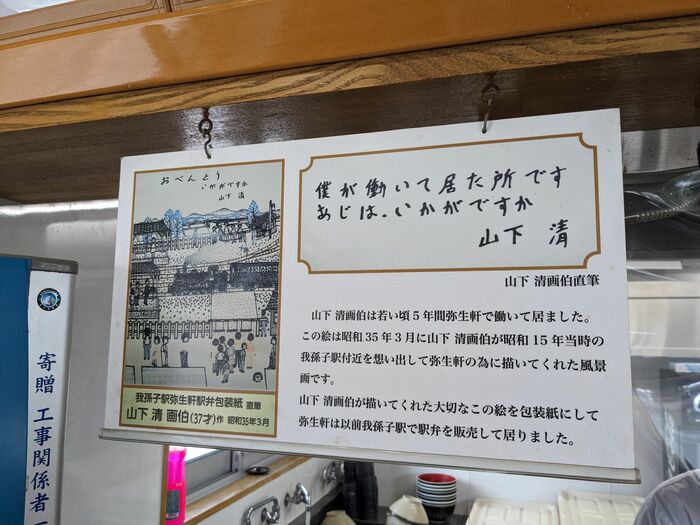 おべんとう
いかがですか
山下 清
我孫子駅弥生軒駅弁包装紙 直筆
山下 清 画伯(37才)作 昭和35年3月
僕が働いて居た所です
あじは、いかがですか
山下 清
山下 清画伯直筆
山下 清画伯は若い頃5年間弥生軒で働いて居ました。
この絵は昭和35年3月に山下 清画伯が昭和15年当時の
我孫子駅付近を想い出して弥生軒の為に描いてくれた風景
画です。
山下 清画伯が描いてくれた大切なこの絵を包装紙にして
弥生軒は以前我孫子駅で駅弁を販売して居りました。
寄贈 工事関係者一